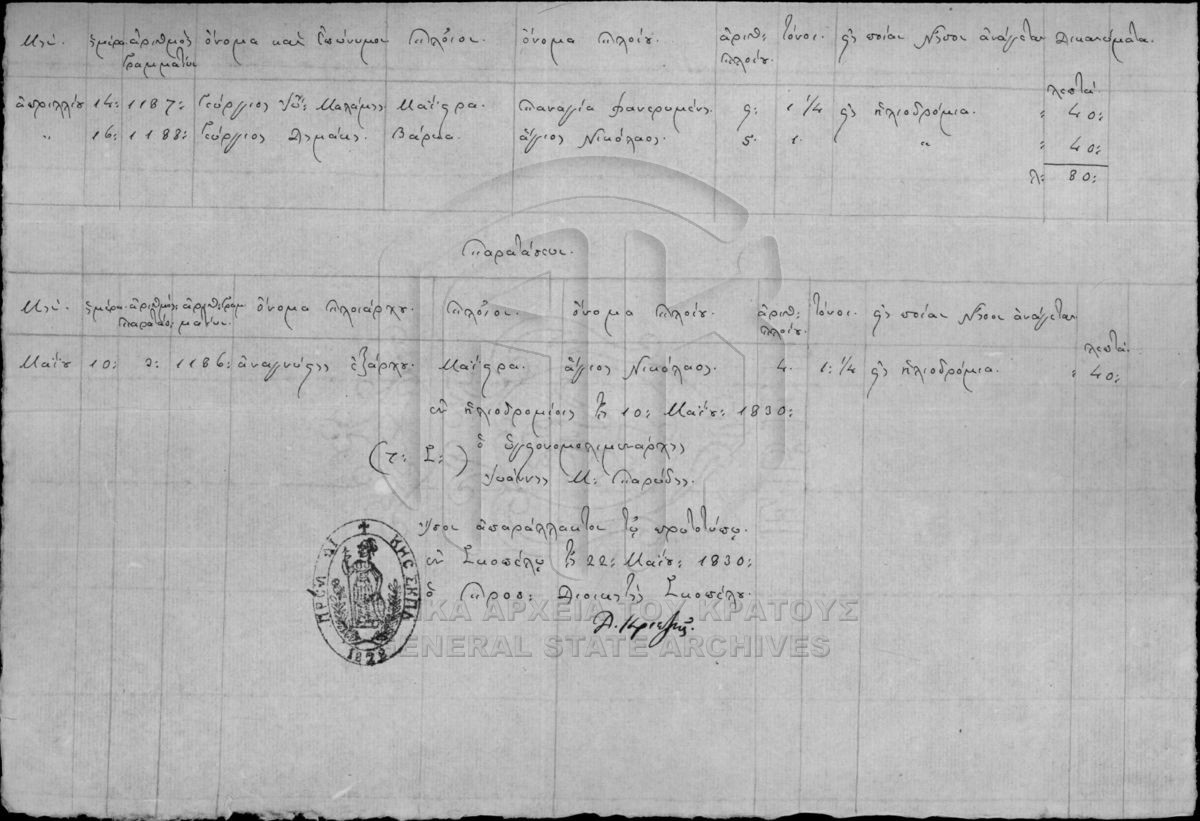 Μην. ἡμέρα ἀριθμὸς γραμματίων ὄνομα καὶ ἐπώνυμον Πλοῖον. ὄνομα Πλοίου. ἀριθ: Πλοίου. τόνοι. εἰς ποίαν Νῆσον ἀνάγεται Δικαιώματα.
λεπτά.
ἀπριλλίου 14: 1187: Γεώργιος Ἰω: Μαλάμης Μαΐστρα. Παναγία φανερωμένη 9: 1 1/4 εἰς ἡλιοδρόμια. " 40:
" 16: 1188: Γεώργιος Δημάκης. Βάρκα. ἅγιος Νικόλαος. 5. 1. " " 40:
λ: 80:
Παρατάσεων.
Μην. ἡμέρα ἀριθμὸς παρατάσ: ἀριθ: γραμματίων. ὄνομα Πλοιάρχου. Πλοῖον. ὄνομα Πλοίου. ἀριθ: πλοίου. τόνοι. εἰς ποίαν Νῆσον ἀνάγεται
λεπτά.
Μαΐου 10: 2: 1186: ἀναγνώστης ἐξάρχου. Μαΐστρα. ἅγιος Νικόλαος. 4. 1: 1/4 εἰς ἡλιοδρόμια. " 40:
ἐν ἡλιοδρομίοις τῇ 10: Μαΐου: 1830:
(Τ: Σ:) ὁ ὑγειονομολιμενάρχης
Ἰωάννης Μ: Παρώδης.
ἴσον ἀπαράλλακτον τῷ πρωτοτύπῳ.
ἐν Σκοπέλῳ τῇ 22: Μαΐου: 1830:
ὁ Προσ: Διοικητὴς Σκοπέλου.
Α. Κριεζῆς.
1828
ΓΕΝΙΚΑ ΑΡΧΕΙΑ ΤΟΥ ΚΡΑΤΟΥΣ
GENERAL STATE ARCHIVES